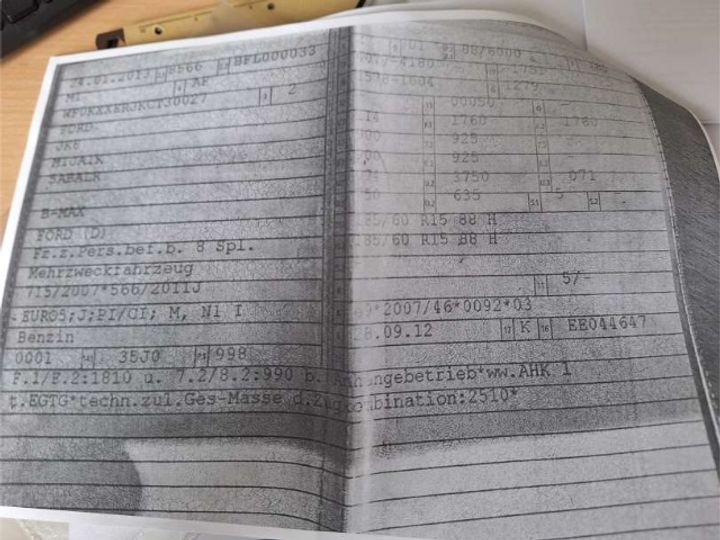 24.01.2013 8566 BFL000033
M1 AF
WF0KXXERJKCT30027 2
FORD
JK8
M1JA1X
5ABALR
B-MAX
FORD (D)
Fz.z.Pers.bef.b. 8 Spl.
Mehrzweckfahrzeug
715/2007*566/2011J
EURO5;J;PI/CI; M, N1 I
Benzin
0001 35J0 998
01 08/6000
4077-4180 1751
1578-1604 1279
00050 -
1760 1760
925
925
3750 071
635 5 -
185/60 R15 88 H
185/60 R15 88 H
5/-
e9*2007/46*0092*03
28.09.12 17 K 16 EE044647
F.1/F.2:1810 u. 7.2/8.2:990 b. Anhängebetrieb*ww.AHK l
t.EGTG*techn.zul.Ges-Masse d.Zugkombination:2510*